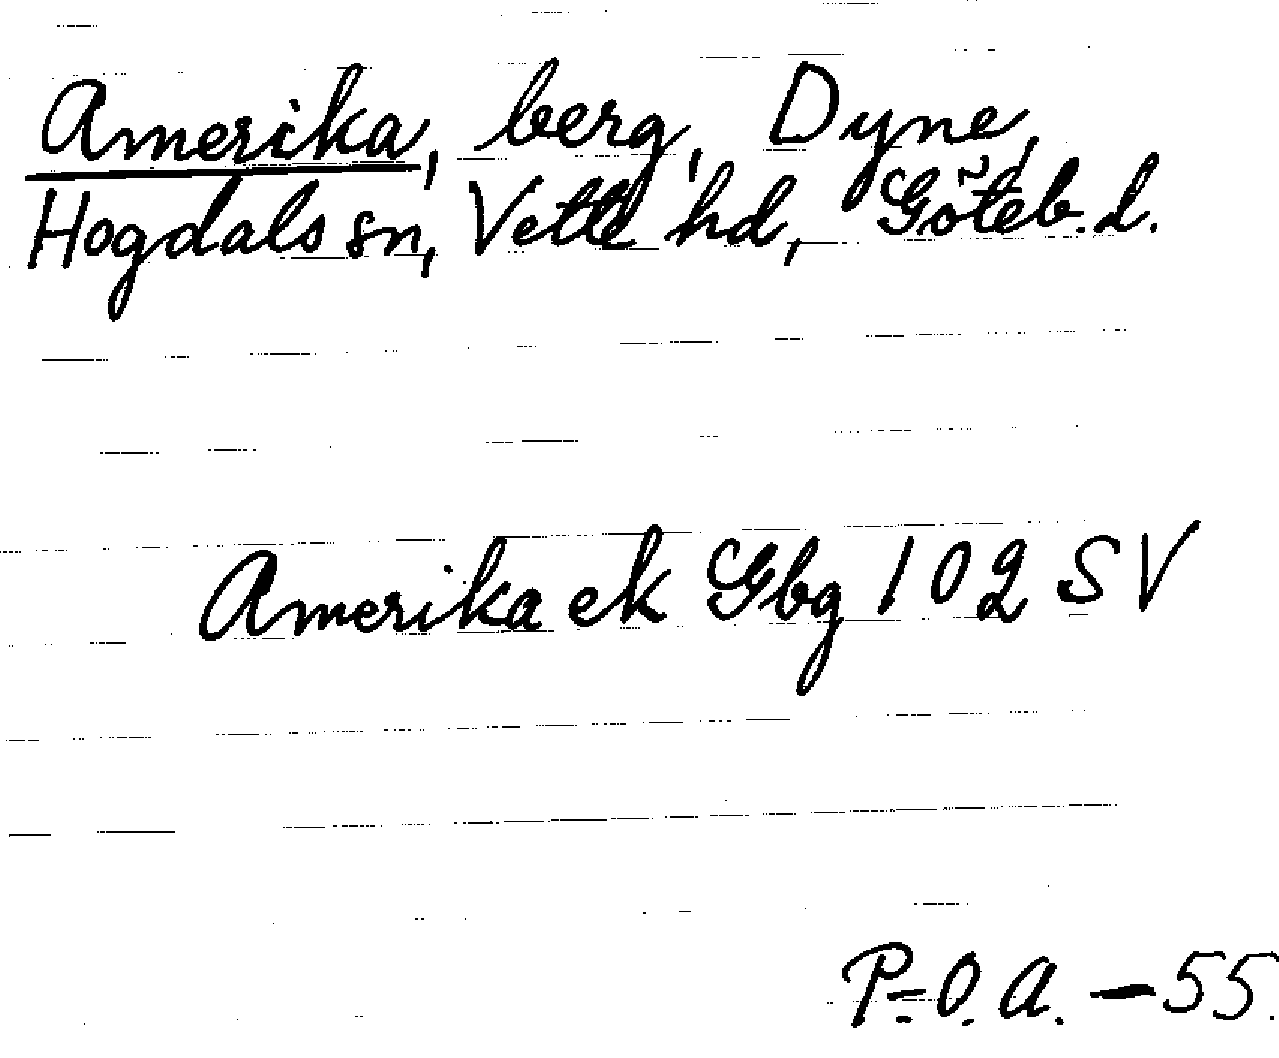 Amerika, berg, Dyne,
Hogdals sn, Vette hd, Göteb. l.
Amerika ek Gbg 102 SV
P-O. A. - 55.